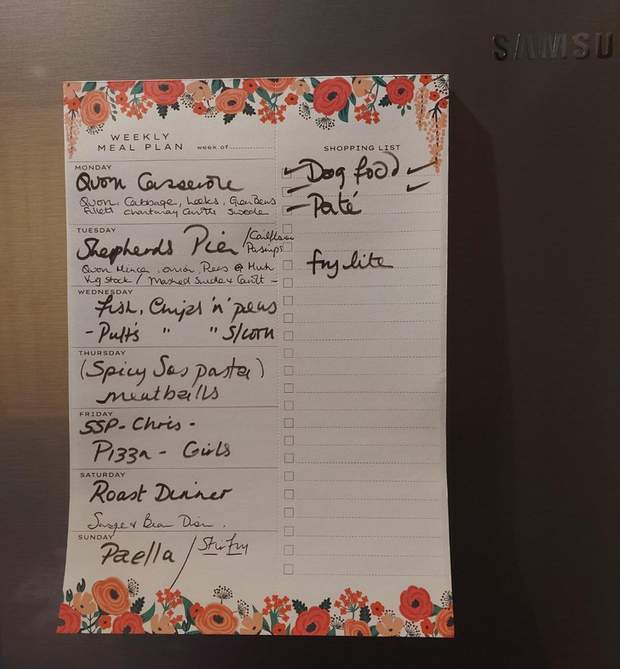 SAMSU
WEEKLY
MEAL PLAN week of
MONDAY
Quorn Casserole
Quorn, Cabbage, Leeks, Green Beans
Fillets Chantenay Carrots Swede
TUESDAY
Shepherds Pie / Cauliflower
Parsnips
Quorn Mince, onion, Peas &
Veg Stock / Mashed Swede & Carrot -
WEDNESDAY
Fish, Chips 'n' peas
- Puffs " " S/corn
THURSDAY
(Spicy Sos pasta)
meatballs
FRIDAY
SSP - Chris -
Pizza - Girls
SATURDAY
Roast Dinner
& Bean
SUNDAY
Paella / Stir Fry
SHOPPING LIST
Dog food
Paté
fry lite